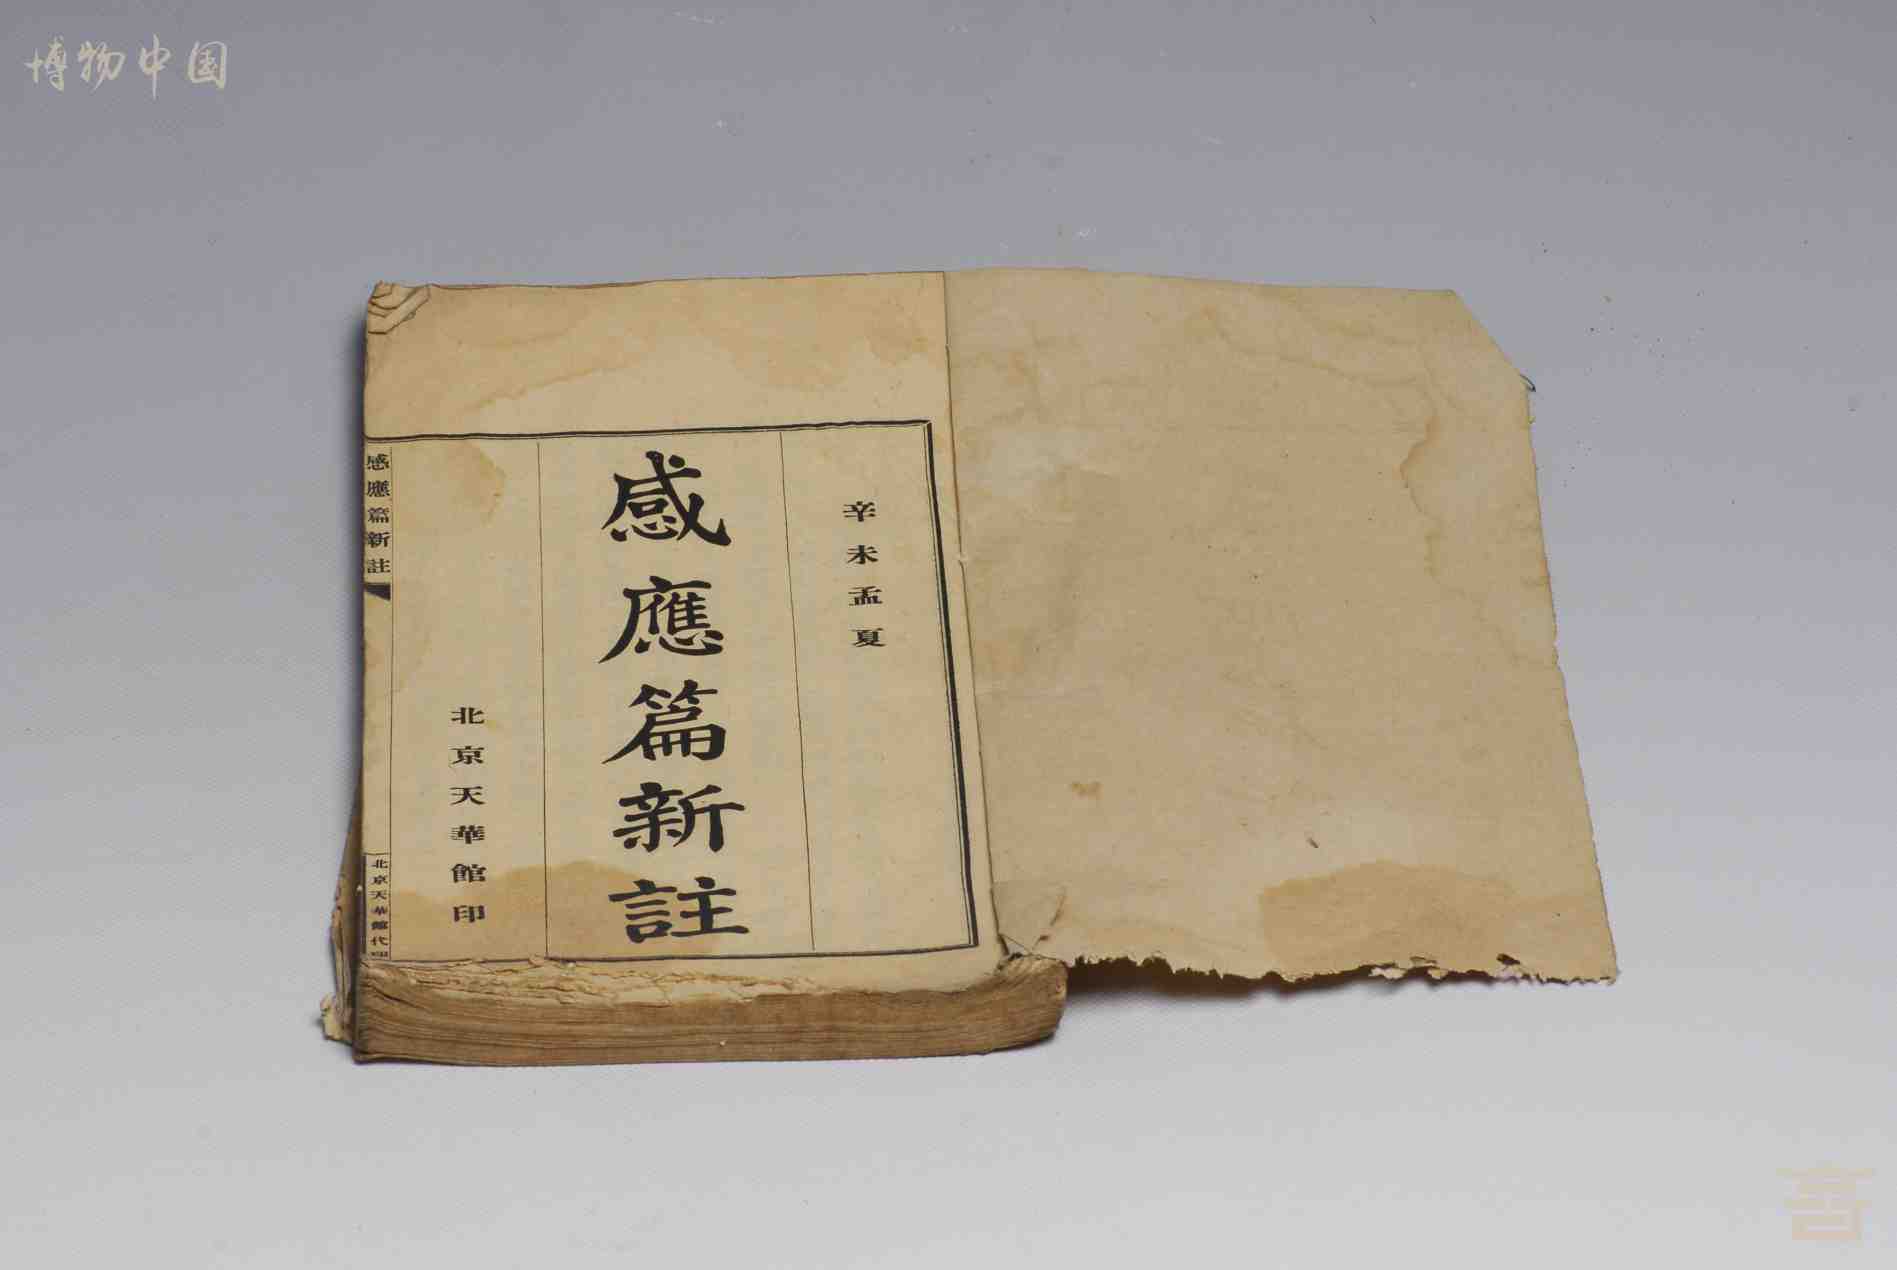 博物中国
辛未孟夏
感應篇新註
北京天華館印
感應篇新註
北京天華館代印